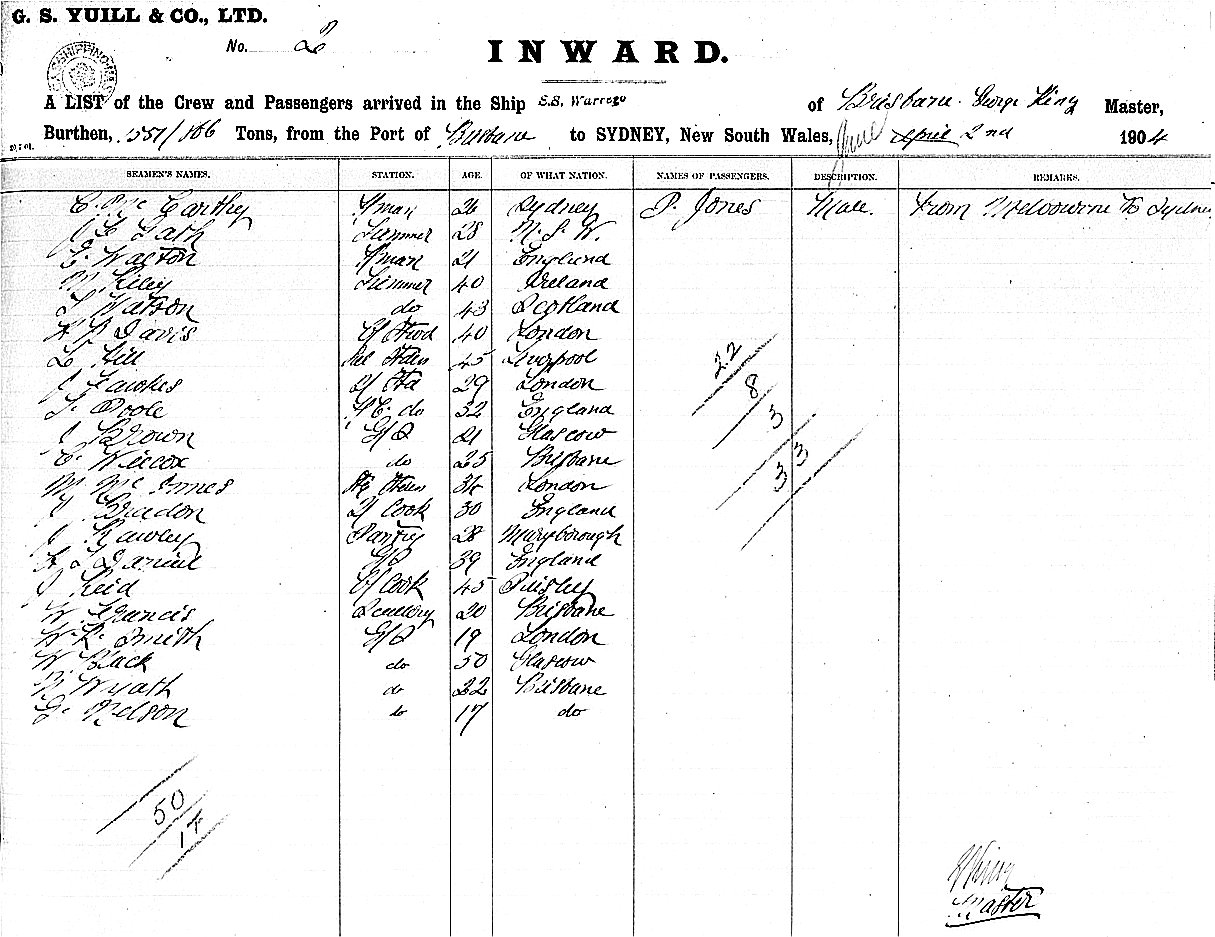 G. S. YUILL & CO., LTD.
No. 2
INWARD.
A LIST of the Crew and Passengers arrived in the Ship S.S. Warrego of Brisbane. George King Master,
Burthen, 1551/166 Tons, from the Port of Brisbane to SYDNEY, New South Wales, June April 2nd 1904
SEAMEN'S NAMES. STATION. AGE. OF WHAT NATION. NAMES OF PASSENGERS. DESCRIPTION. REMARKS.
C. Mc Carthy F/man 26 Sydney P. Jones Male. From Melbourne to Sydney
28 N. S. W.
E. Walton F/man 21 England
M Riley 40 Ireland
T Watson do 43 Scotland
H J Davis C/ Stwd 40 London
L. Hill 45 Liverpool
J Fawkes 2/ Std 29 London
T. Poole do 32 England
J Brown G/S 21 Glascow
C. Wilcox do 25 Brisbane
M Mc Innes 36 London
2/ Cook 30 England
J Rawley Pantry 28 Maryborough
Daniel G/S 39 England
J Reid C/ Cook 45 Paisley
W Francis Scullery 20 Brisbane
W. R. Smith G/S 19 London
W Black do 50 Glascow
Wyath do 22 Brisbane
G. Nelson do 17 do
22
8
3
33
50
17
G King
Master